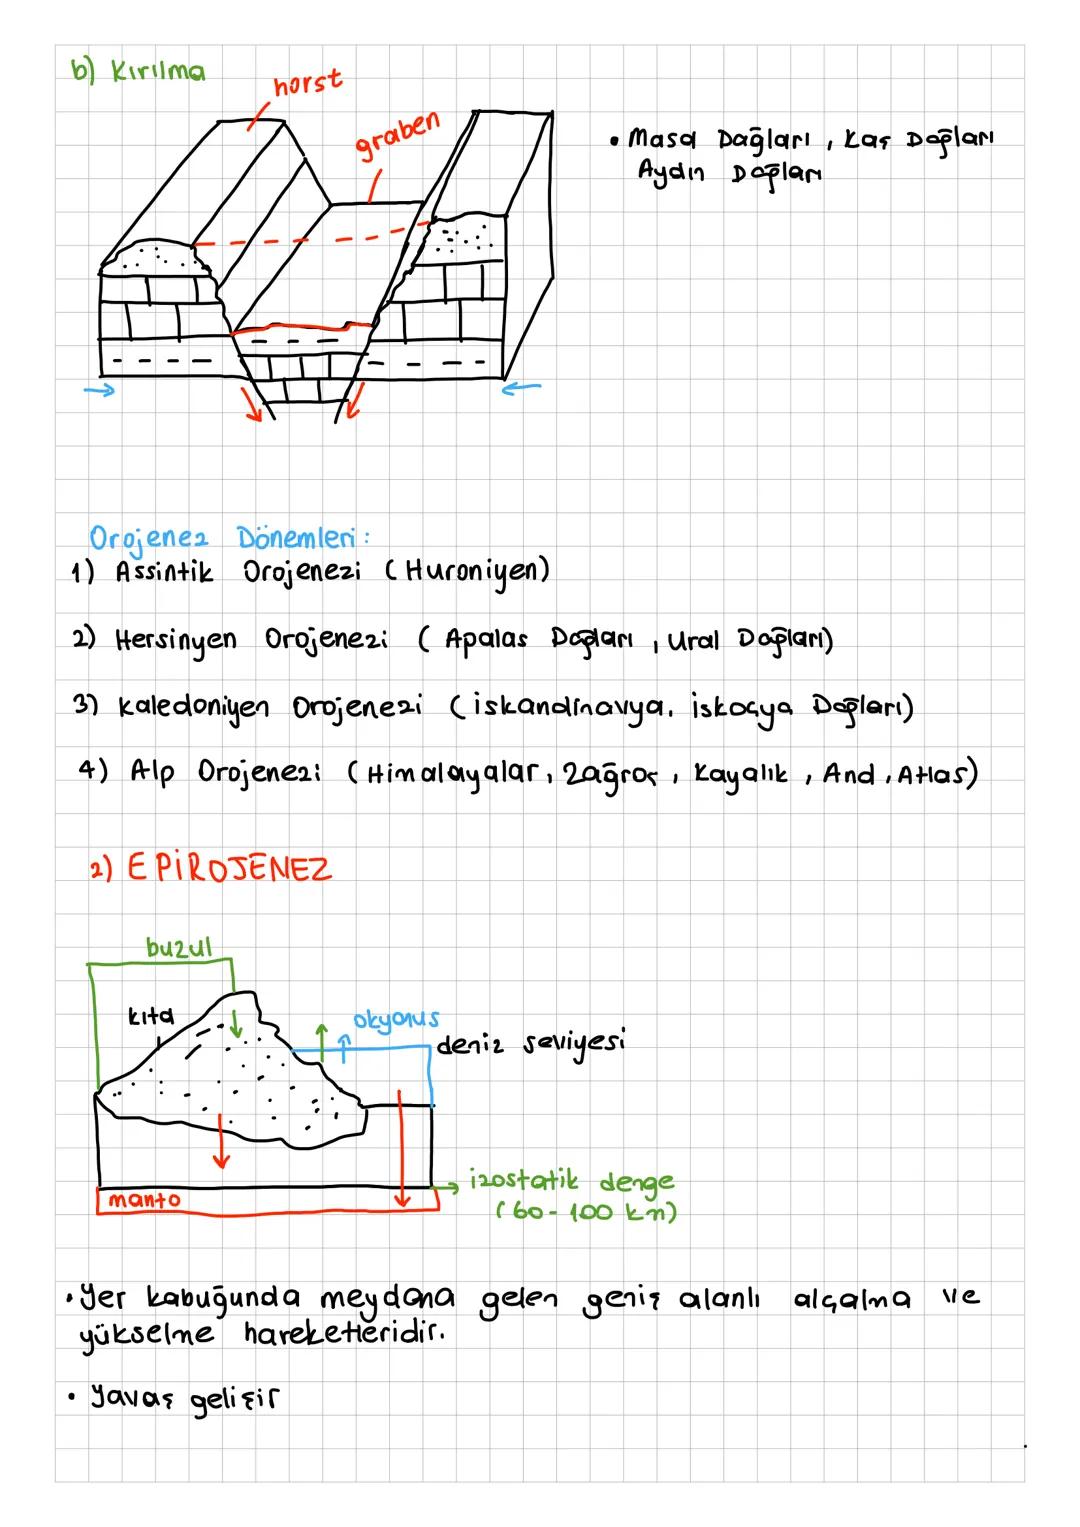 b) Kırılma
horst
graben
• Masa Dağları, Kaş Dağları
Aydın Dağları
Orojenez Dönemleri:
1) Assintik Orojenezi (Huroniyen)
2) Hersinyen Orojenezi (Apalas Dağları, Ural Dağları)
3) Kaledoniyen Orojenezi (iskandinavya, iskoçya Dağları)
4) Alp Orojenezi (Himalayalar, Zağros, Kayalık, And, Atlas)
2) EPİROJENEZ
buzul
kıta
okyonus
deniz seviyesi
manto
izostatik denge
(60-100 km)
• Yer kabuğunda meydana gelen geniş alanlı alçalma ve
yükselme hareketleridir.
• Yavaş gelişir